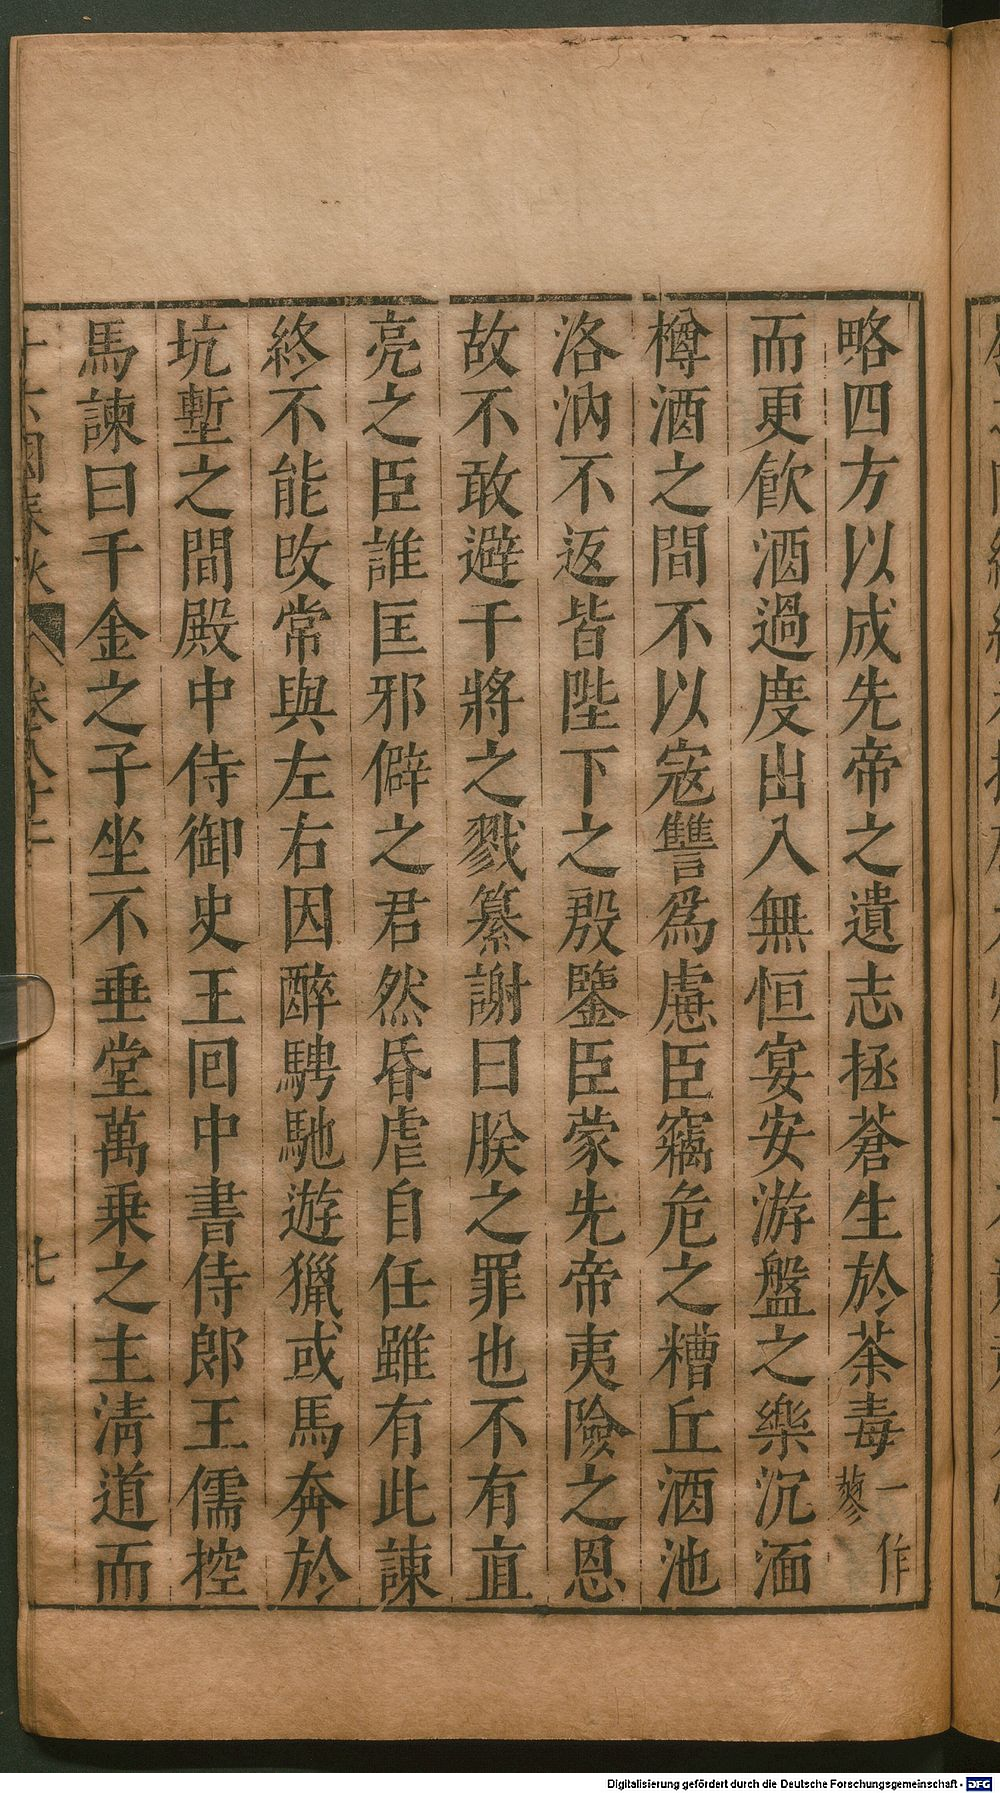 略四方以成先帝之遺志拯蒼生於荼毒一作蓼
而更飲酒過度出入無恒宴安游盤之樂沉湎
樽酒之間不以寇讐爲慮臣竊危之糟丘酒池
洛汭不返皆陛下之殷鑒臣蒙先帝夷險之恩
故不敢避干將之戮纂謝曰朕之罪也不有直
亮之臣誰匡邪僻之君然昏虐自任雖有此諫
終不能改常與左右因醉騁馳遊獵或馬奔於
坑塹之間殿中侍御史王回中書侍郎王儒控
馬諫曰千金之子坐不垂堂萬乗之主清道而
十六國春秋 卷八十二 七
Digitalisierung gefördert durch die Deutsche Forschungsgemeinschaft - DFG